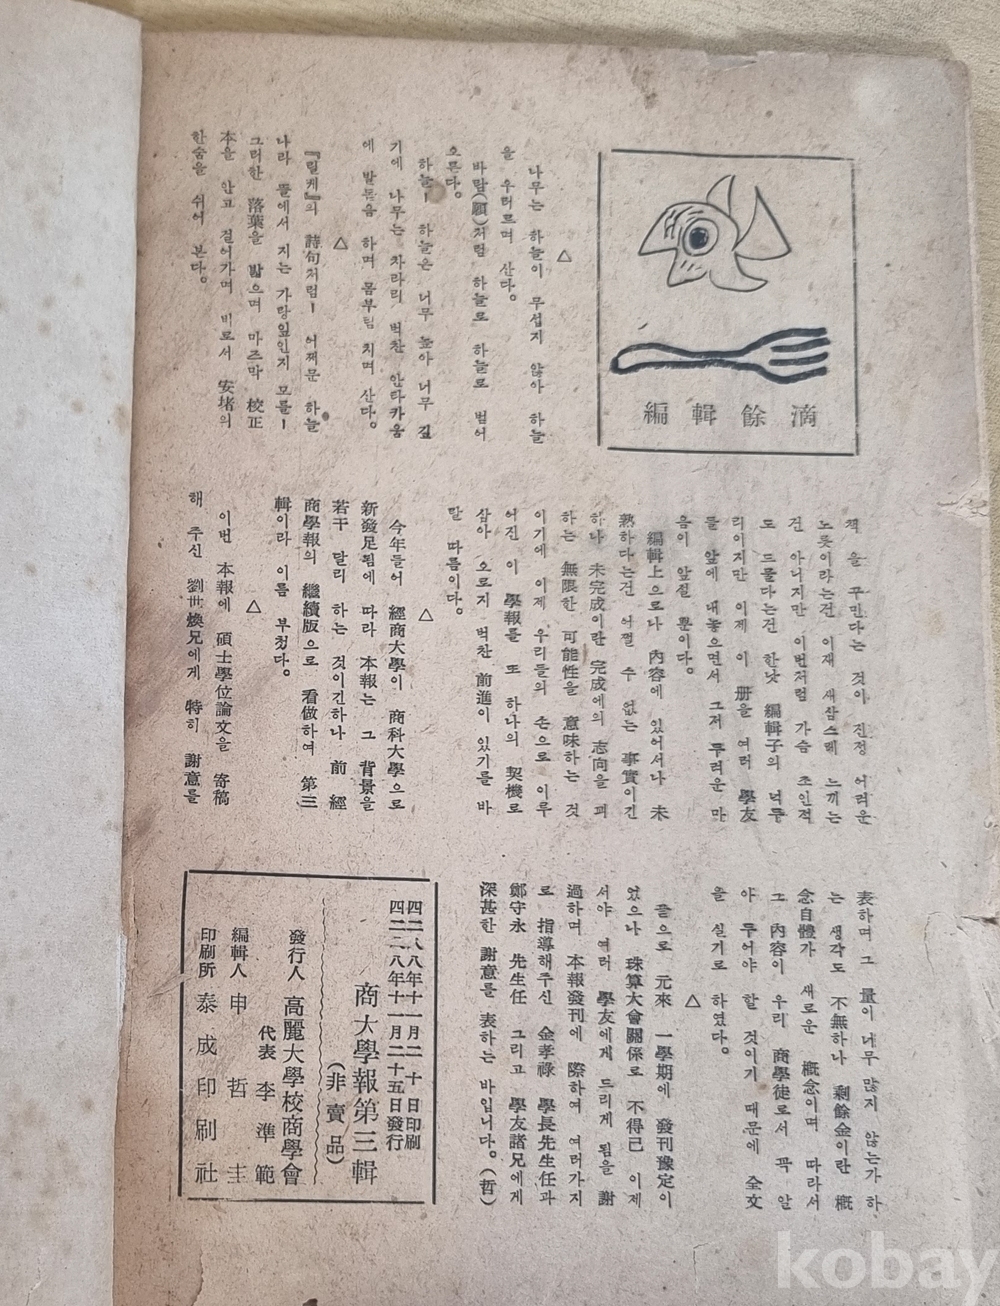 編輯餘滴
△
나무는 하늘이 무섭지 않아 하늘
을 우러르며 산다。
바람(願)처럼 하늘로 하늘로 벋어
오른다。
하늘― 하늘은 너무 높아 너무 깊
기에 나무는 차라리 벅찬 안타카움
에 발돋음 하며 몸부림 치며 산다。
△
『릴케』의 詩句처럼― 어쩌문 하늘
나라 뜰에서 지는 가랑잎인지 모를―
그러한 落葉을 밟으며 마즈막 校正
本을 안고 걸어가며 비로서 安堵의
한숨을 쉬어 본다。
책을 꾸민다는 것이 진정 어려운
노릇이라는건 이재 새삼스레 느끼는
건 아니지만 이번처럼 가슴 조인적
도 드물다는건 한낫 編輯子의 넉두
리이지만 이제 이 册을 여러 學友
들 앞에 내놓으면서 그저 두려운 마
음이 앞설 뿐이다。
編輯上으로나 內容에 있어서나 未
熟하다는건 어쩔 수 없는 事實이긴
하나 未完成이란 完成에의 志向을 꾀
하는 無限한 可能性을 意味하는 것
이기에 이제 우리들의 손으로 이루
어진 이 學報를 또 하나의 契機로
삼아 오로지 벅찬 前進이 있기를 바
랄 따름이다。
△
今年들어 經商大學이 商科大學으로
新發足됨에 따라 本報는 그 背景을
若干 달리 하는 것이긴하나 前 經
商學報의 繼續版으로 看做하여 第三
輯이라 이름 부쳤다。
△
이번 本報에 碩士學位論文을 寄稿
해 주신 劉世煥兄에게 特히 謝意를
表하며 그 量이 너무 많지 않는가 하
는 생각도 不無하나 剩餘金이란 槪
念自體가 새로운 槪念이며 따라서
그 內容이 우리 商學徒로서 꼭 알
아 두어야 할 것이기 때문에 全文
을 실기로 하였다。
△
끝으로 元來 一學期에 發刊豫定이
었으나 珠算大會關係로 不得已 이제
서야 여러 學友에게 드리게 됨을 謝
過하며 本報發刊에 際하여 여러가지
로 指導해주신 金孝祿 學長先生任과
鄭守永 先生任 그리고 學友諸兄에게
深甚한 謝意를 表하는 바입니다。(哲)
四二八八年十一月二十日印刷
四二八八年十一月二十五日發行
商大學報第三輯
(非賣品)
發行人 高麗大學校商學會
代表 李準範
編輯人 申哲圭
印刷所 泰成印刷社
kobay